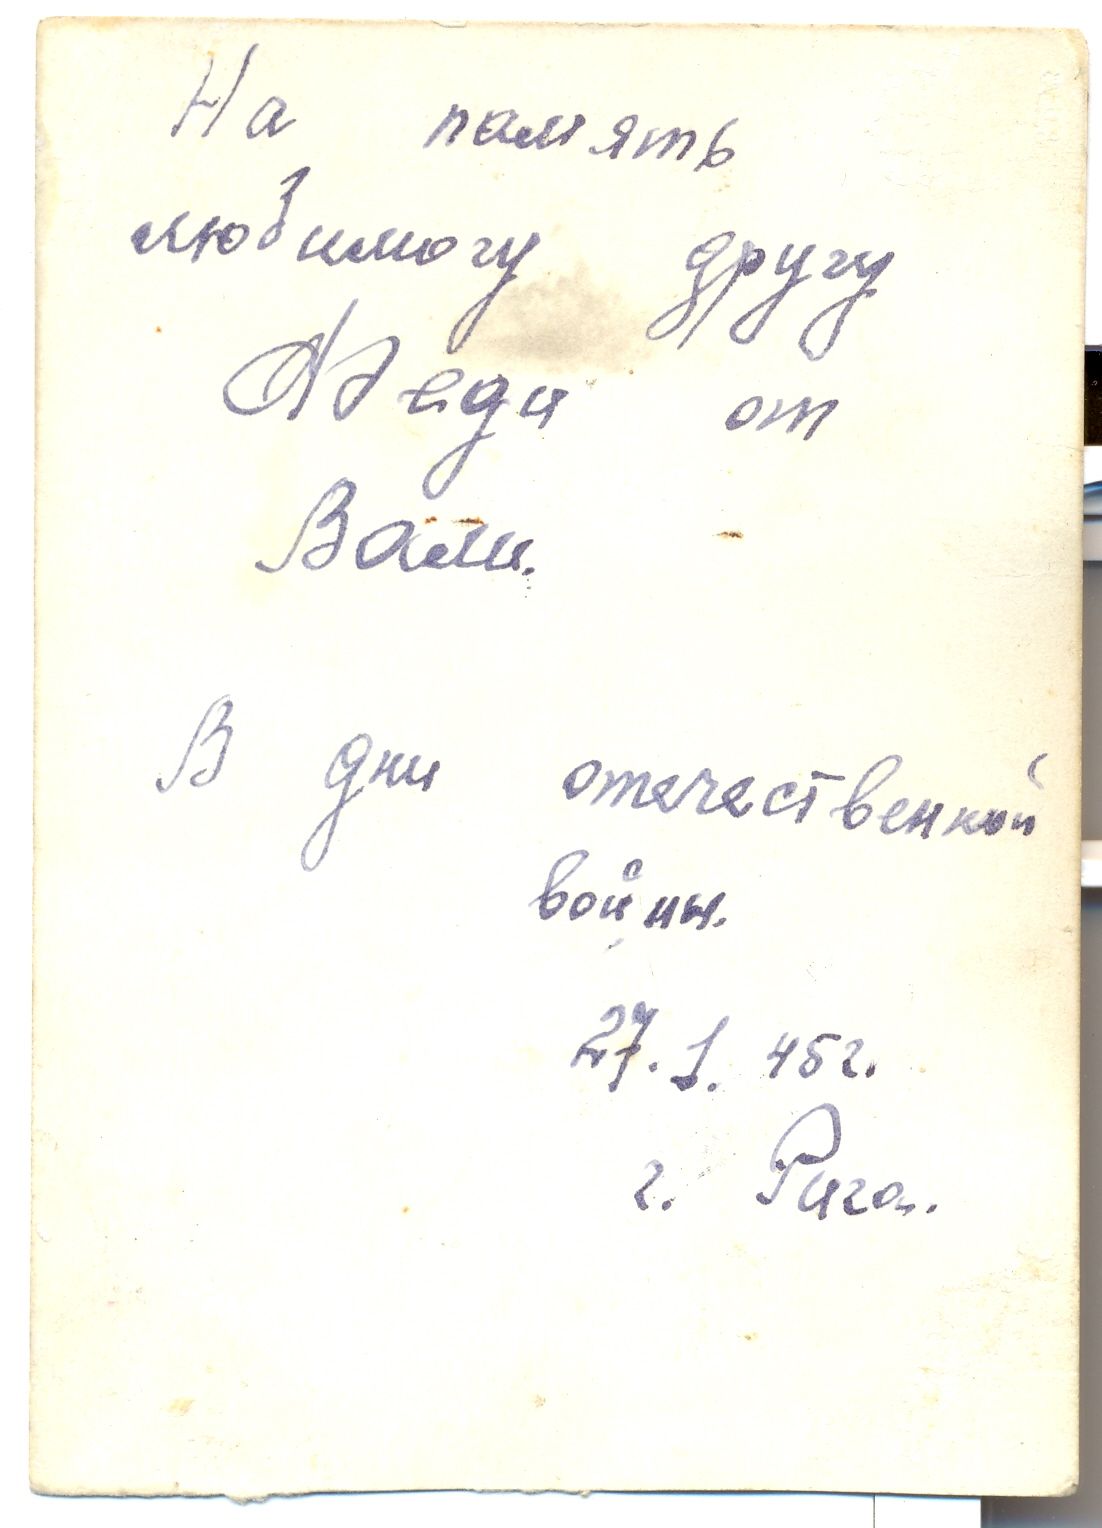 На память
любимогу другу
от
Вали.
В дни отечественной
войны.
27.1.45г.
г. Рига.